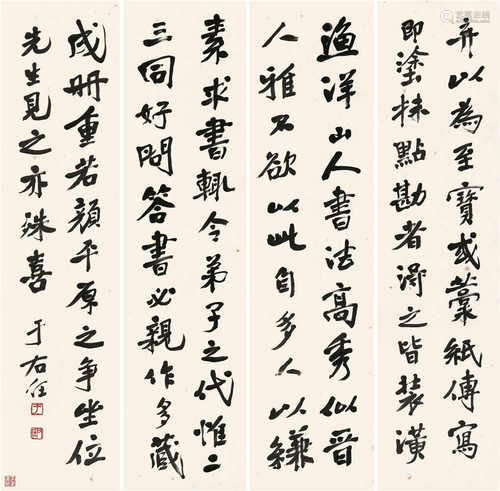 弆以為至寶或藁紙傳寫
即塗抹點勘者得之皆裝潢
漁洋山人書法高秀似晉
人雅不欲以此自多人以縑
素求書輒令弟子之代惟二
三同好問答書必親作多藏
成冊重若顏平原之爭坐位
先生見之亦殊喜
于右任